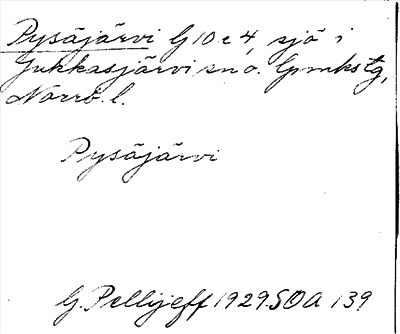 Pysäjärvi G 10 e 4, sjö i
Jukkasjärvi sn o. lpmkstg,
Norrb. l.
Pysäjärvi
G. Pellijeff 1929 SOA 139